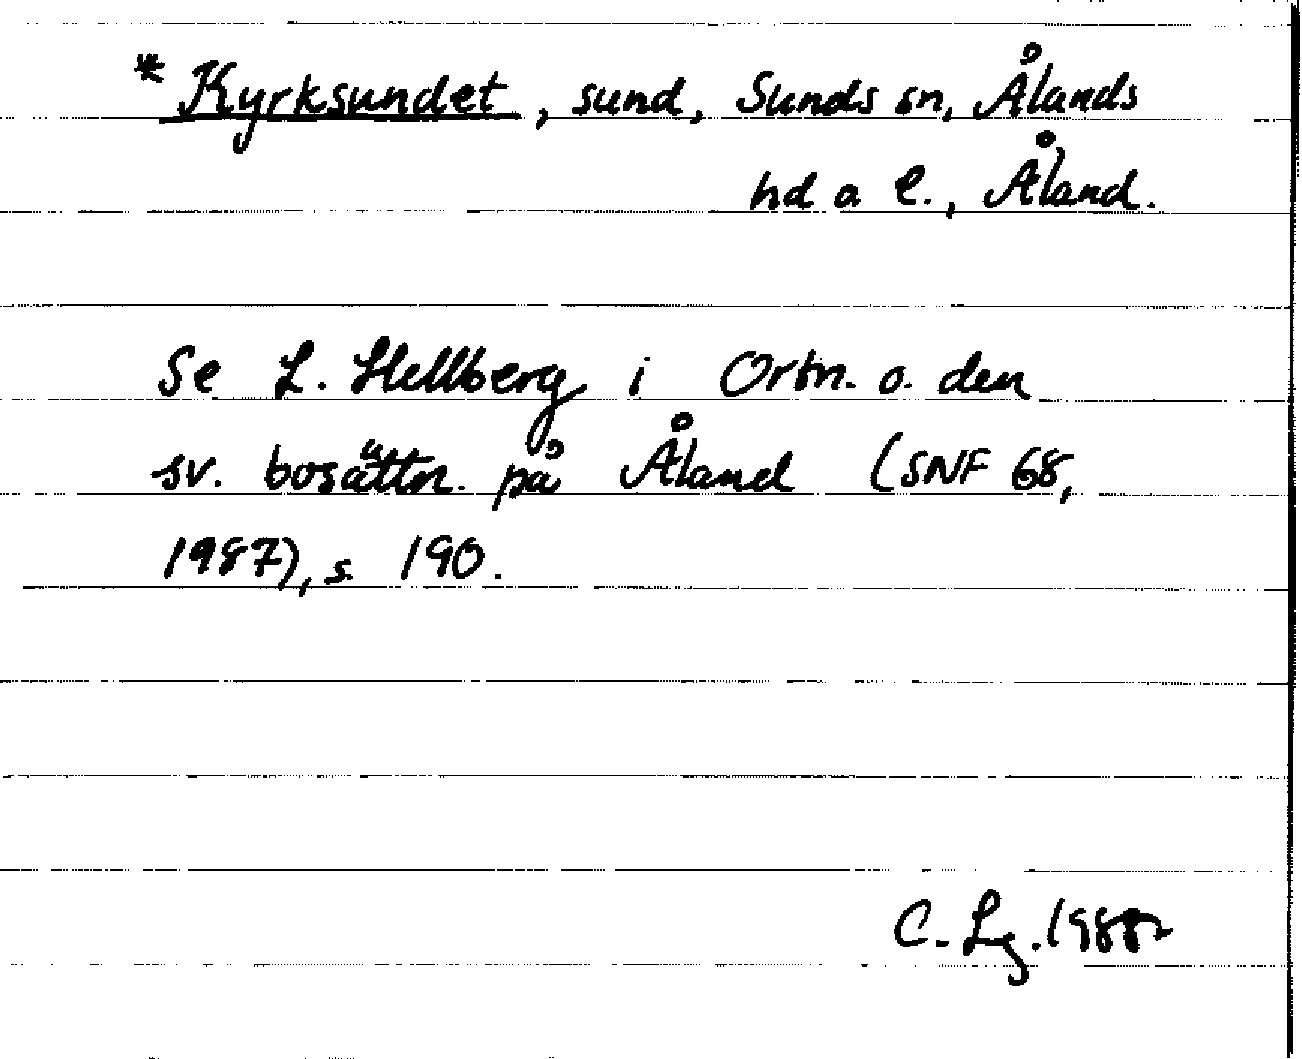 * Kyrksundet, sund, Sunds sn, Ålands
hd o l., Åland.
Se L. Hellberg i Ortn. o. den
sv. bosättn. på Åland (SNF 68,
1987), s 190.
C. Lg.